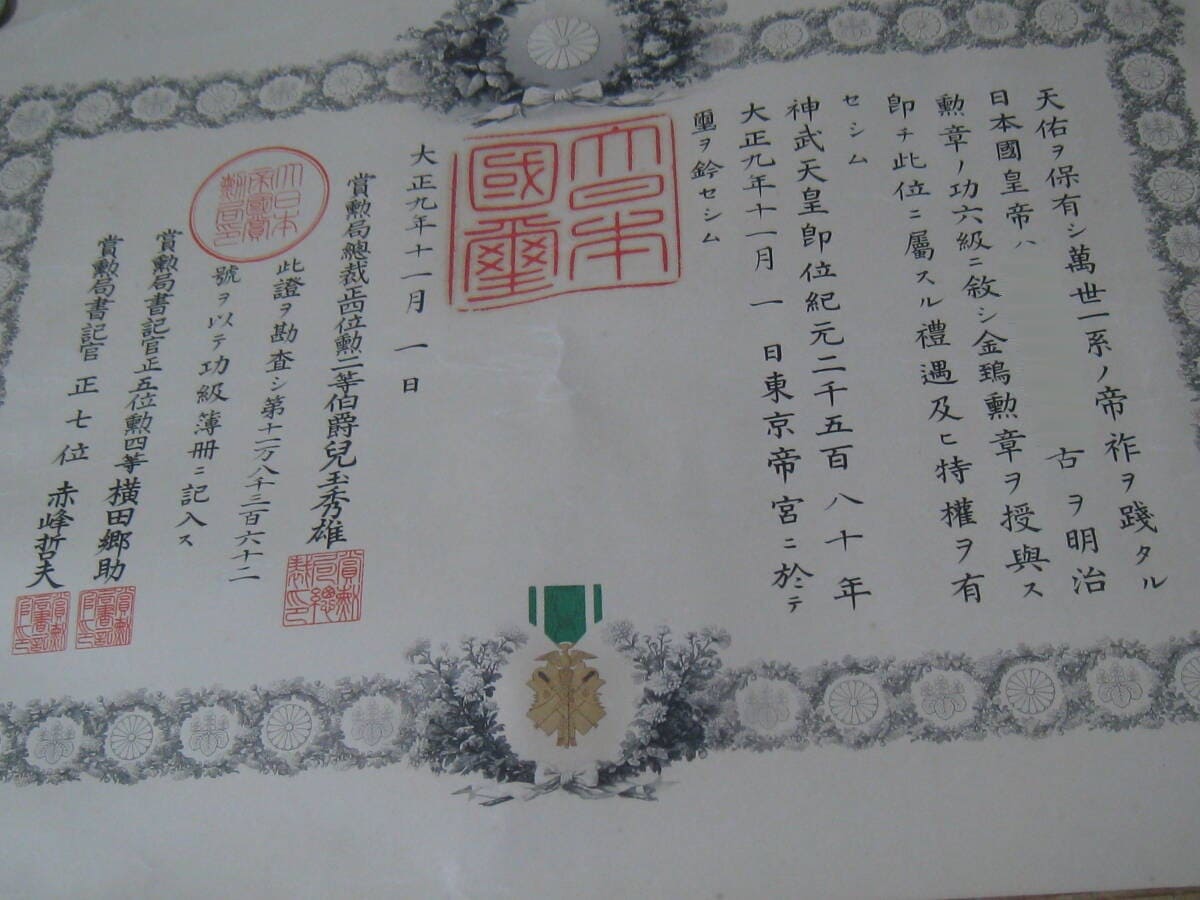 天佑ヲ保有シ萬世一系ノ帝祚ヲ踐タル
日本國皇帝ハ
古ヲ明治
勲章ノ功六級ニ敘シ金鵄勲章ヲ授與ス
即チ此位ニ屬スル禮遇及ヒ特權ヲ有
セシム
神武天皇即位紀元二千五百八十年
大正九年十一月一日東京帝宮ニ於テ
璽ヲ鈐セシム
大日本
國璽
大正九年十一月一日
賞勲局總裁正四位勲二等伯爵兒玉秀雄
賞勲局總裁印
此證ヲ勘査シ第十一万八千三百六十二
號ヲ以テ功級簿册ニ記入ス
大日本
帝國賞
勲局印
賞勲局書記官正五位勲四等横田郷助
賞勲局書記官正七位赤峰哲夫